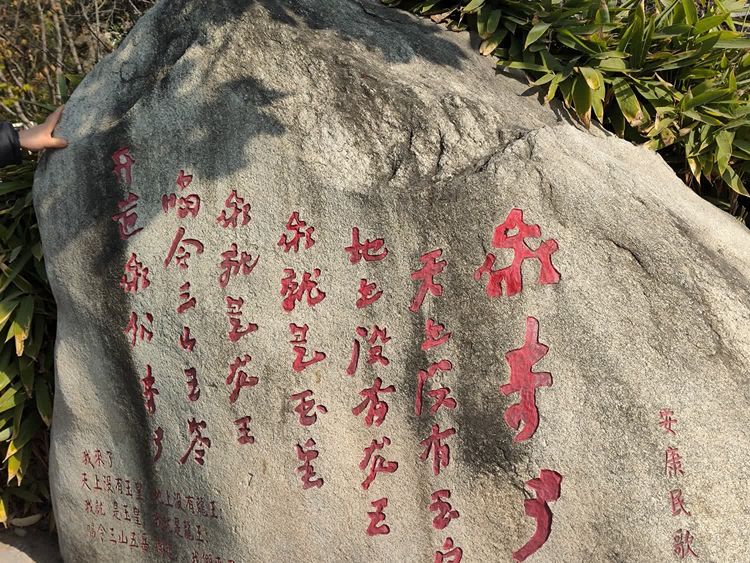 安康民歌
我来了
天上没有玉皇
地上没有龙王
我就是玉皇
我就是龙王
喝令三山五岭
开道我们来了
我來了
天上没有玉皇 地上没有龍王,
我就是玉皇 我就是龍王;
喝令三山五